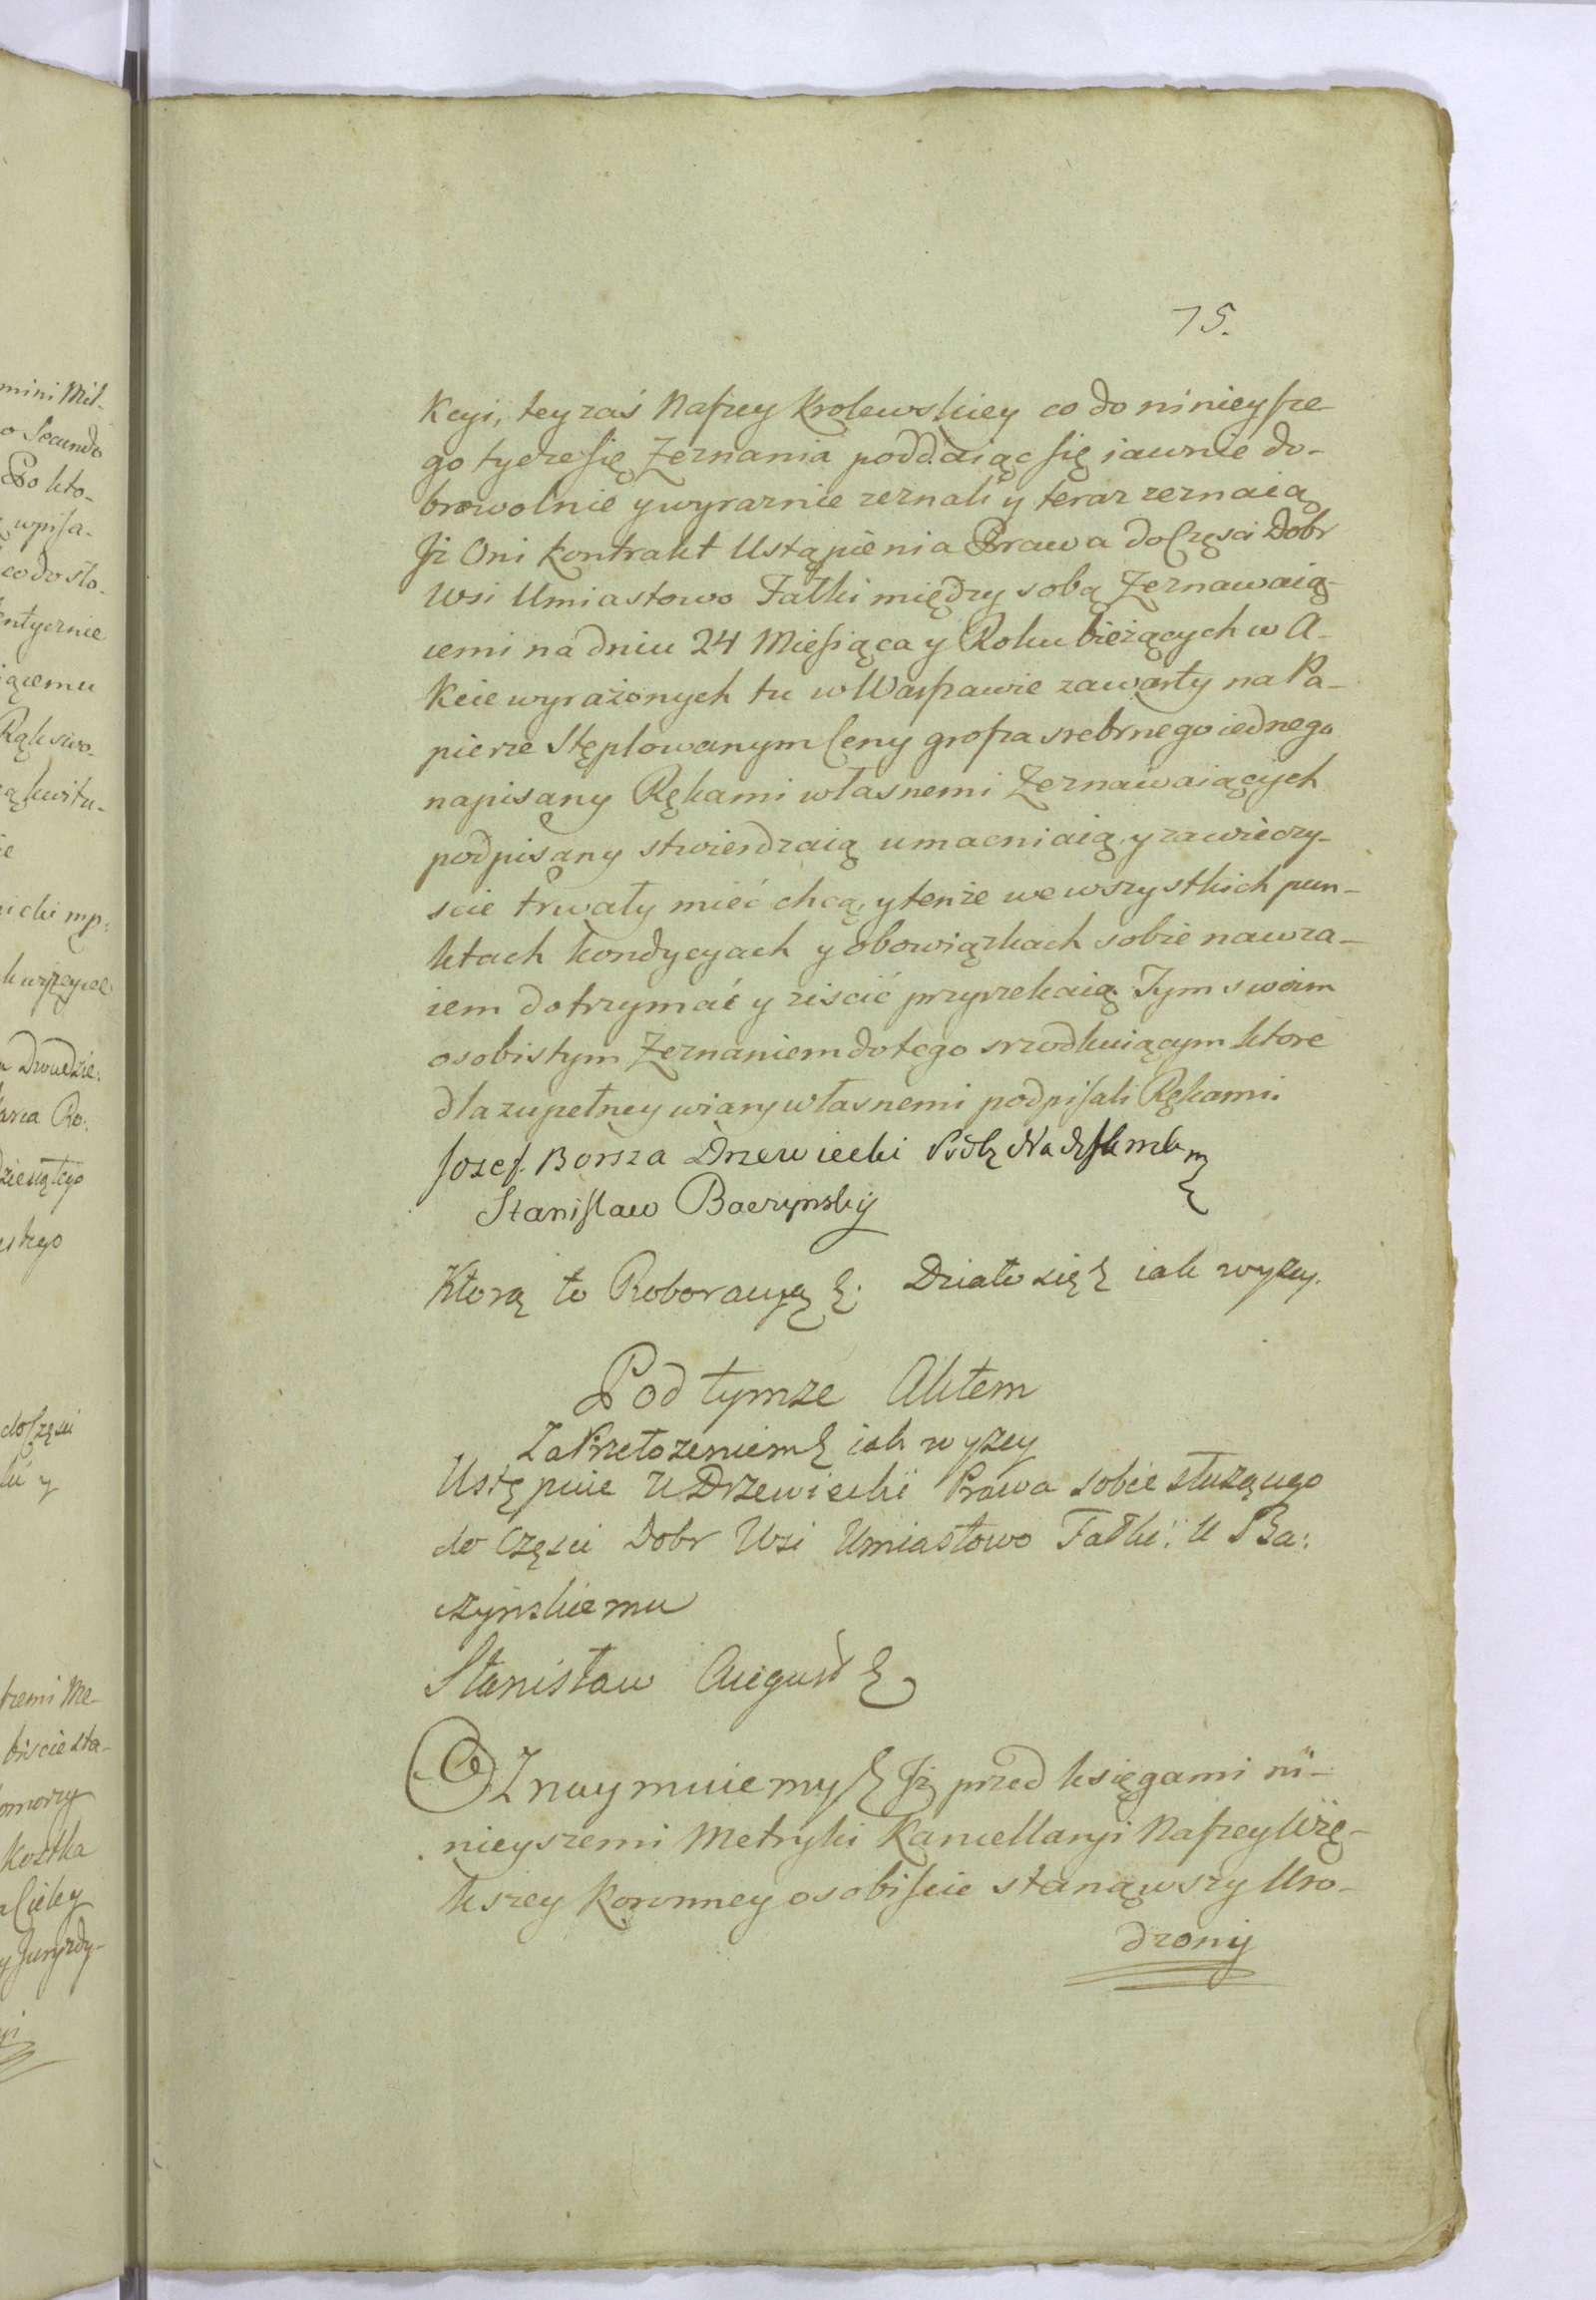 75.
Kcyi, tey zaś Naszey Krolewskiey co do ninieysze-
go tycze się Zeznania poddaiąc się iawnie do-
browolnie y wyraznie zeznali y teraz zeznaią
Jż Oni kontrakt Ustąpienia Prawa do Częsci Dobr
Wsi Umiastowo Fałki między sobą Zeznawaią-
cemi na dniu 24 Miesiąca y Roku bieżących w A-
kcie wyrażonych tu w Warszawie zawarty na Pa-
pierze Stęplowanym Ceny grosza srebrnego iednego
napisany Rękami własnemi Zeznawaiących
podpisany stwierdzaią umacniaią, y zawieczy-
scie trwały mieć chcą, y tenże we wszystkich pun-
ktach kondycyach y obowiązkach sobie nawza-
iem dotrzymać y ziscić przyrzekaią. Tym swoim
osobistym Zeznaniem do tego srzodkuiącym ktore
dla zupełney wiary własnemi podpisali Rękami.
Jozef Borsza Drzewiecki
Stanisław Baczynskÿ
Ktorą to Roboracyą &. Działo się & iak wyzey.
Pod tymze Aktem
Za Przełozeniem & iak wyzey
Ustępuie U Drzewiecki Prawa sobie słuzącego
do Częsci Dobr Wsi Umiastowo Fałki: U Ba:
czynskiemu
Stanisław August &
OZnaymuiemy & Jż przed księgami ni-
nieyszemi Metryki Kancellaryi Naszey Wię-
kszey Koronney osobiscie stanąwszy Uro-
dzony
mini Mil-
o Secundo
Po kto-
wpisa-
co do sło-
entycznie
iącemu
Rąk swo-
ą kwitu-
ie
nicki mp:
Dwudzie:
Ro:
dziesiątego
do Częsci
y
szemi Me-
biscie sta-
omorzy
Kostka
y Juryzdy-